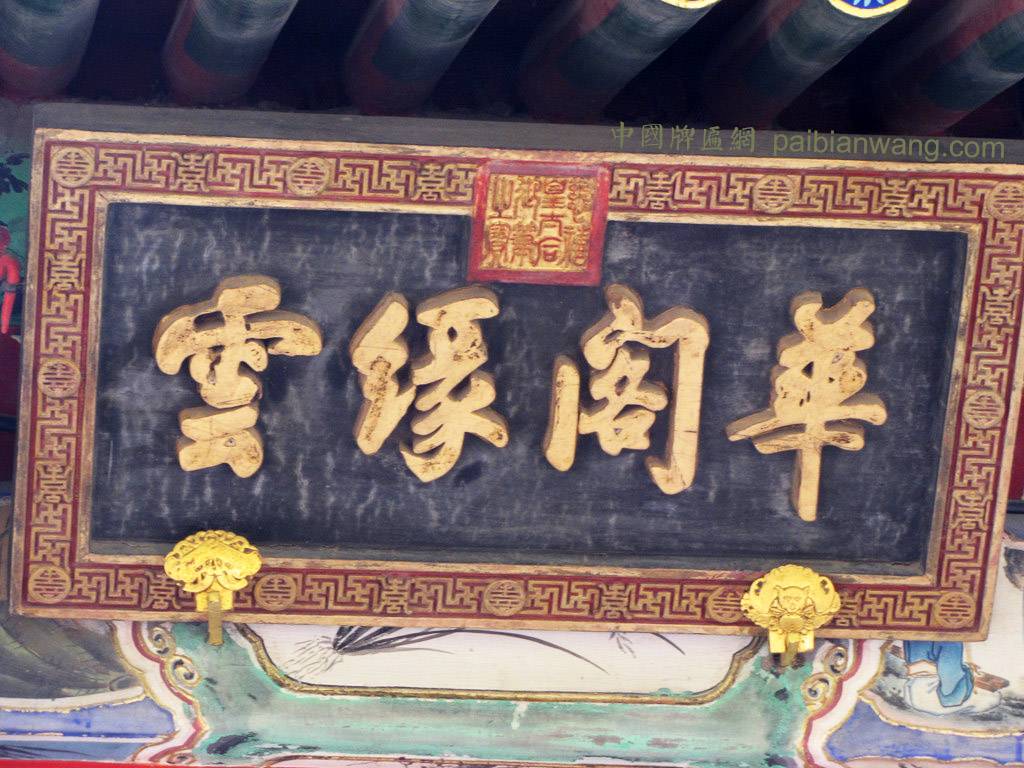 中國牌匾網 paibianwang.com
慈禧
皇太后
御筆
之寶
華閣緣雲